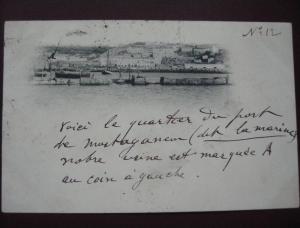 N° 12
Voici le quartier du port
de Mostaganem (dit la marine)
notre usine est marquée A
au coin à gauche.